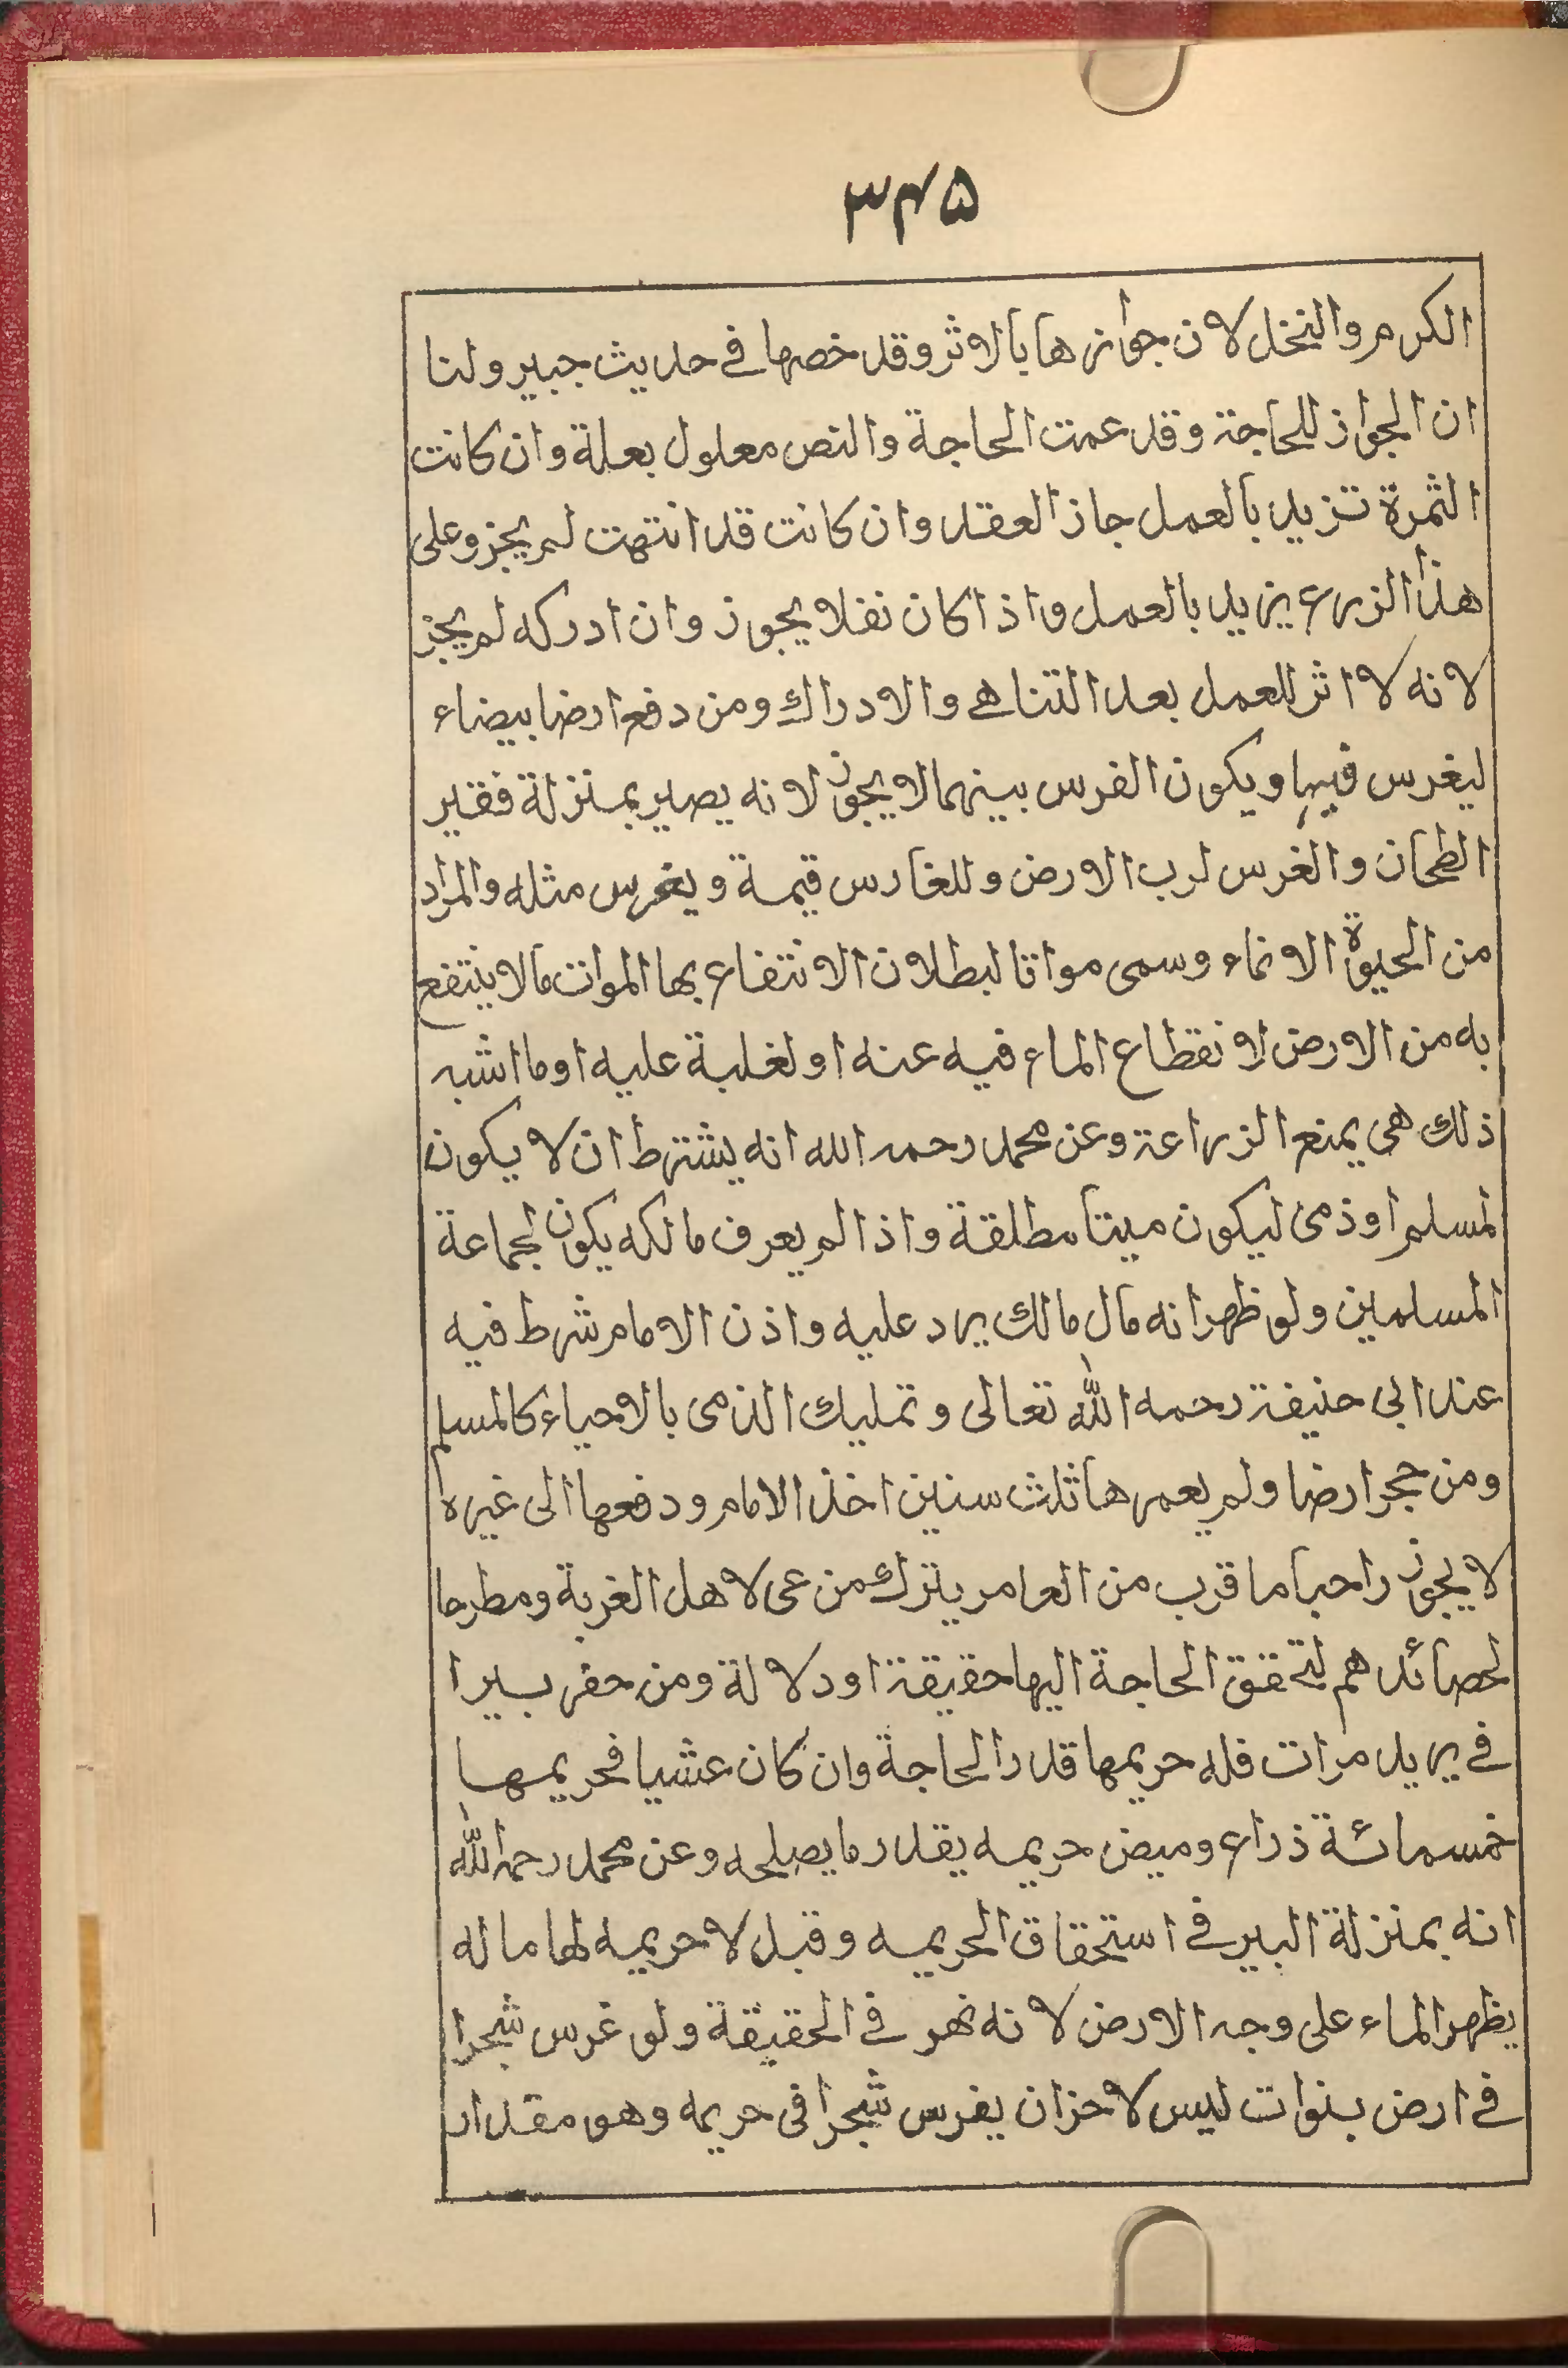 ۳۴۵
الكرم والنخل لان جوازها بالاثر وقد خصها في حديث جبير ولنا
ان الجواز للحاجة وقد عمت الحاجة والنص معلول بعلة وان كانت
الثمرة تزيد بالعمل جاز العقد وان كانت قد انتهت لم يجز وعلى
هذا الزرع يزيد بالعمل واذا كان نقلا يجوز وان ادركه لم يجز
لانه لا اثر للعمل بعد التناهي والادراك ومن دفع ارضا بيضاء
ليغرس فيها ويكون الغرس بينهما لا يجوز لانه يصير بمنزلة فقير
الطحان والغرس لرب الارض وللغارس قيمة ويغرس مثله والمراد
من الحيوة الانماء وسمى مواتا لبطلان الانتفاع بها الموات مالا ينتفع
به من الارض لانقطاع الماء فيه عنه او لغلبة عليه او ما اشبه
ذلك هى يمنع الزراعة وعن محمد رحمه الله انه يشترط ان لا يكون
لمسلم او ذمى ليكون ميتا مطلقة واذا لم يعرف مالكه يكون لجماعة
المسلمين ولو ظهر انه مال مالك يرد عليه واذن الامام شرط فيه
عند ابى حنيفة رحمه الله تعالى وتمليك الذمى بالاحياء كالمسلم
ومن حجر ارضا ولم يعمرها ثلث سنين اخذ الامام ودفعها الى غيره
لا يجوز احيا ما قرب من العامر يترك من عى لاهل الغربة ومطرحا
لحصائدهم لتحقق الحاجة اليها حقيقة او دلالة ومن حفر بيرا
في يريد مرات فله حريمها قدر الحاجة وان كان عشيا فحريمها
خمسمائة ذراع وميض حريمه يقدر ما يصلحه وعن محمد رحمه الله
انه بمنزلة البير في استحقاق الحريمه وقبل لا حريمه لها ماله
يظهر الماء على وجه الارض لانه نهر في الحقيقة ولو غرس شجرا
في ارض بنوات ليس لاحزان يغرس شجرا فى حريمه وهو مقدار